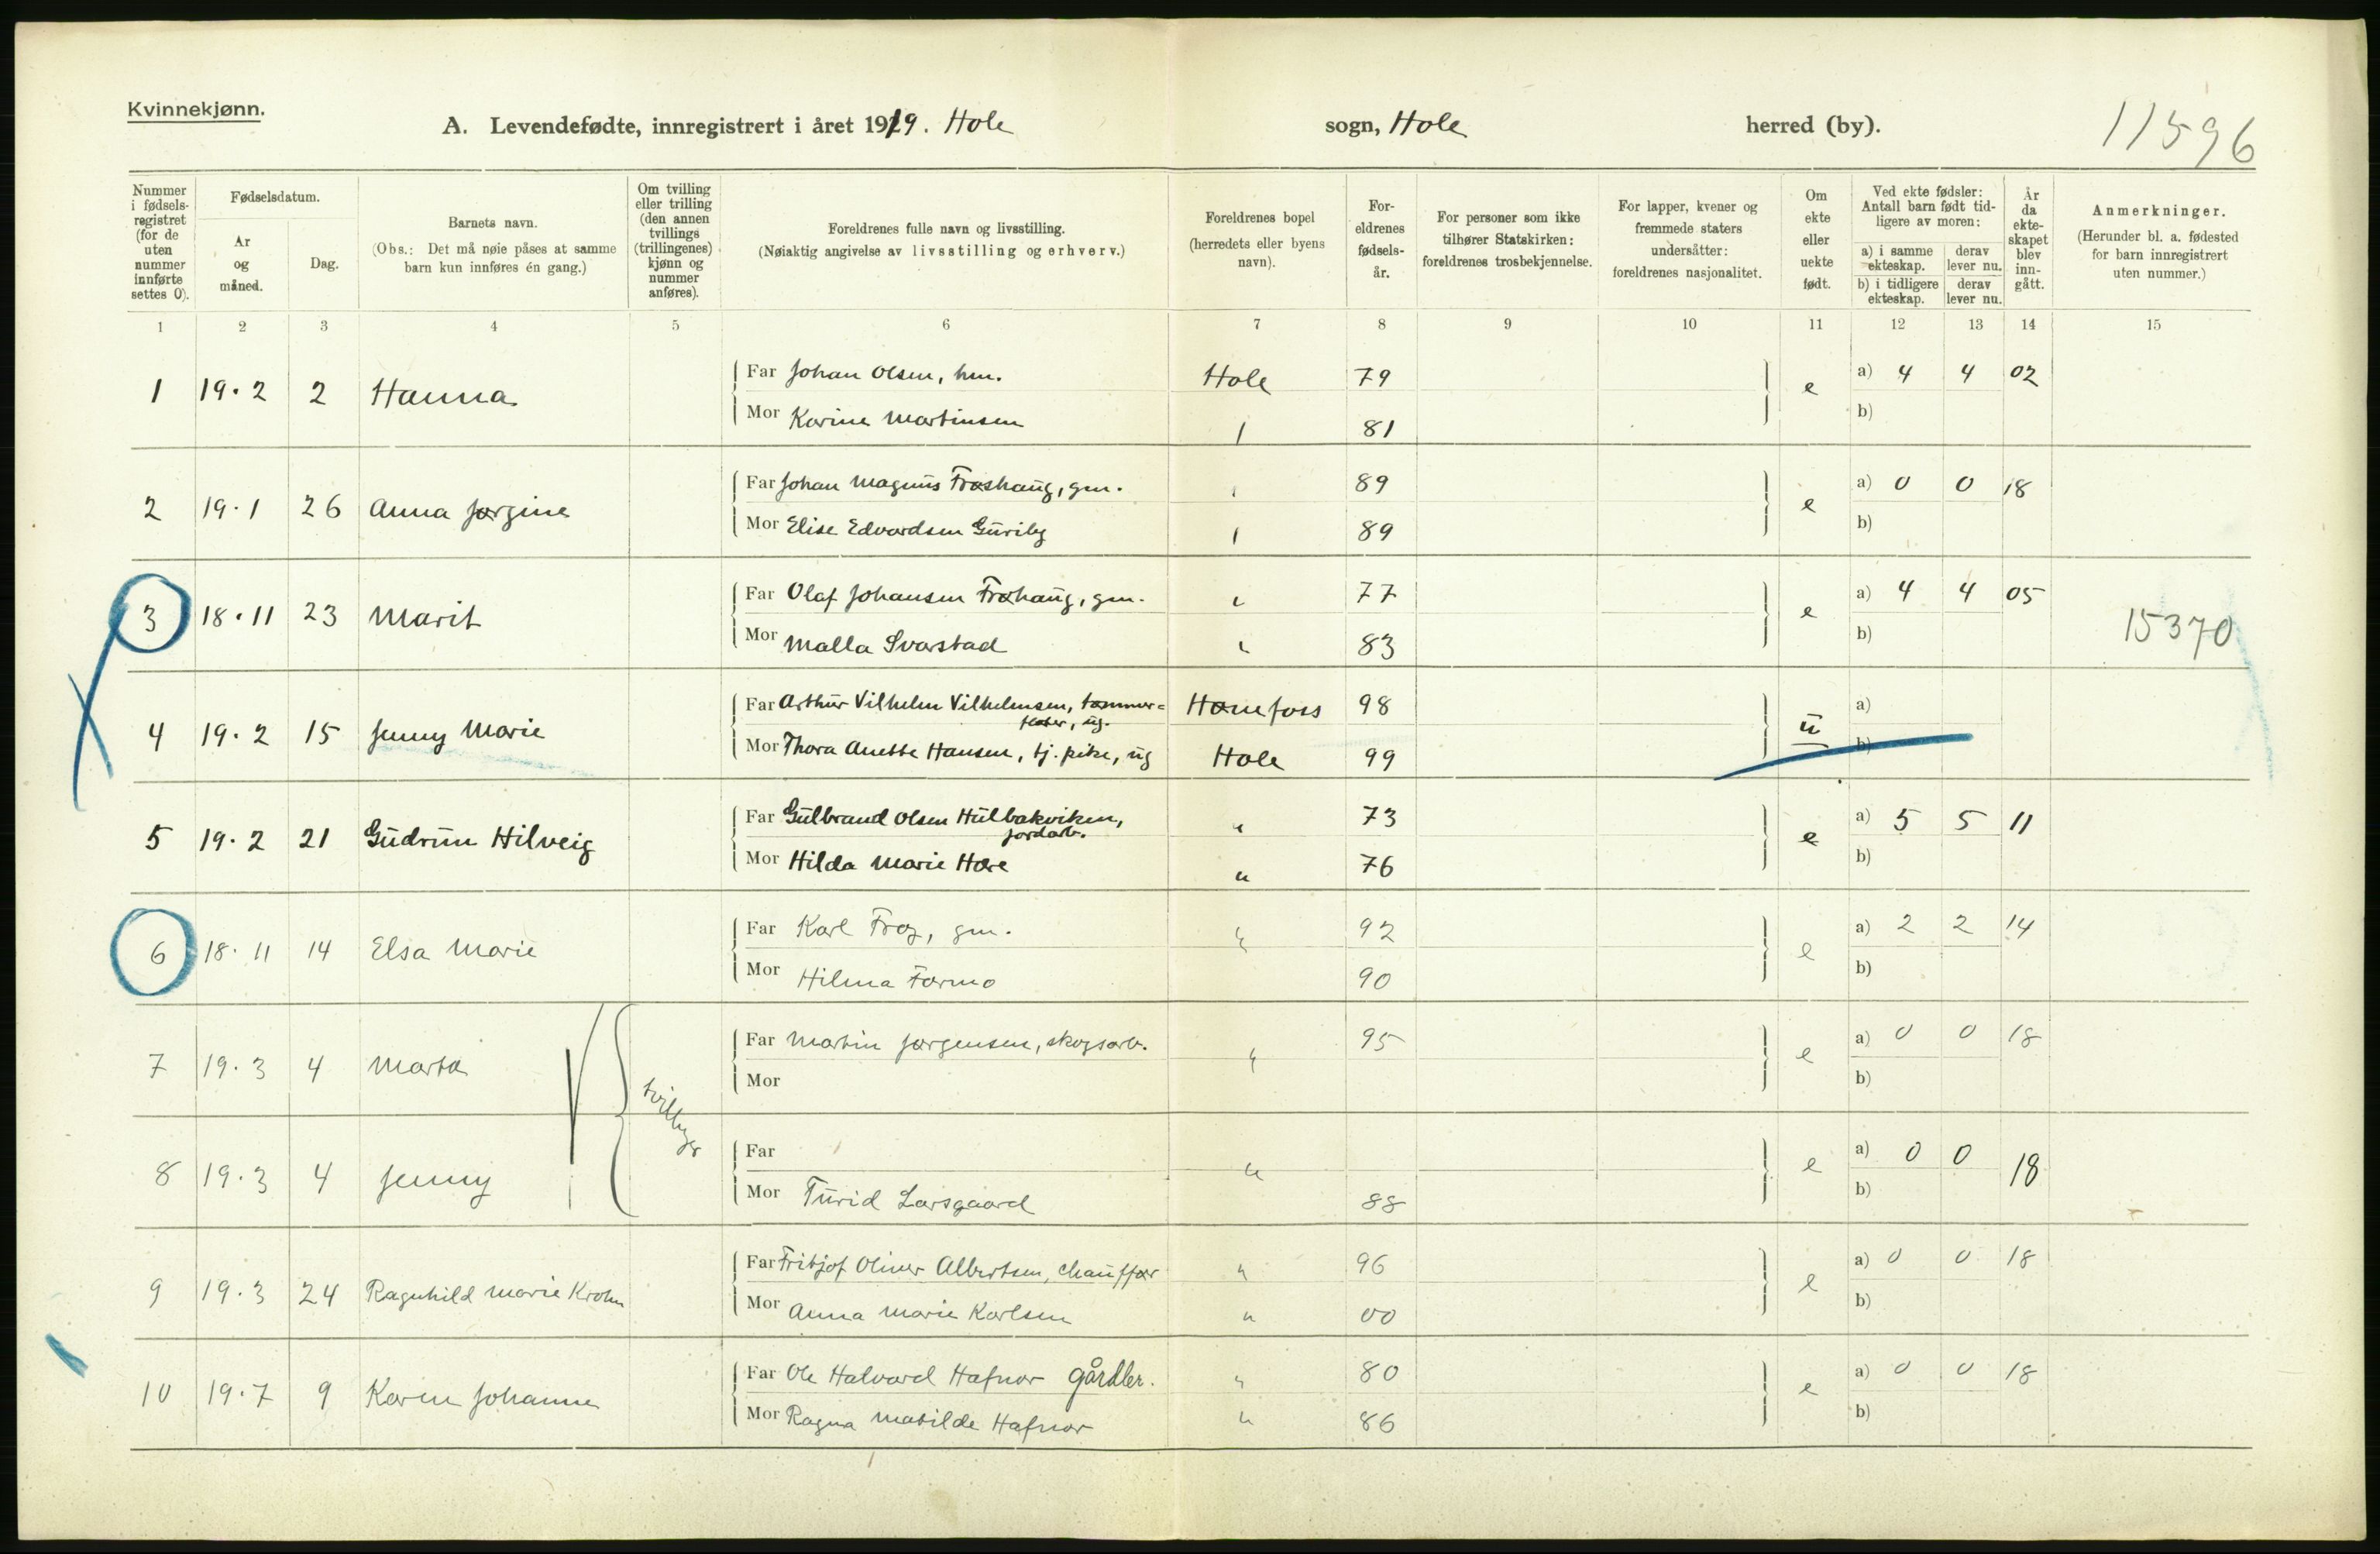 Kvinnekjønn.
A. Levendefødte, innregistrert i året 1919. Hole sogn, Hole herred (by).
11596
Nummer i fødselsregistret (for de uten nummer innførte settes 0).
Fødselsdatum.
År og måned.
Dag.
Barnets navn.
(Obs.: Det må nøie påses at samme barn kun innføres én gang.)
Om tvilling eller trilling (den annen tvillings (trillingenes) kjønn og nummer anføres).
Foreldrenes fulle navn og livsstilling.
(Nøiaktig angivelse av livsstilling og erhverv.)
Foreldrenes bopel (herredets eller byens navn).
Foreldrenes fødselsår.
For personer som ikke tilhører Statskirken: foreldrenes trosbekjennelse.
For lapper, kvener og fremmede staters undersåtter: foreldrenes nasjonalitet.
Om ekte eller uekte født.
Ved ekte fødsler: Antall barn født tidligere av moren:
a) i samme ekteskap.
derav lever nu.
b) i tidligere ekteskap.
derav lever nu.
År da ekteskapet blev inngått.
Anmerkninger.
(Herunder bl. a. fødested for barn innregistrert uten nummer.)
1 2 3 4 5 6 7 8 9 10 11 12 13 14 15
1 19.2 2 Hanna Far Johan Olsen, hm. Hole 79 e a) 4 4 02
Mor Karine Martinsen 81 b)
2 19.1 26 Anna Jørgine Far Johan Magnus Frøshaug, gm. 89 e a) 0 0 18
Mor Elise Edvardsen Guriby 89 b)
3 18.11 23 Marit Far Olaf Johansen Frøhaug, gm. " 77 e a) 4 4 05 15370
Mor Malla Svarstad " 83 b)
4 19.2 15 Jenny Marie Far Arthur Vilhelm Vilhelmsen, tømmer=
fløter, ug. Hønefoss 98 u a)
Mor Thora Anette Hansen, tj. pike, ug Hole 99 b)
5 19.2 21 Gudrun Hilveig Far Gulbrand Olsen Hulbakviken,
jordarb. " 73 e a) 5 5 11
Mor Hilda Marie Hære " 76 b)
6 18.11 14 Elsa Marie Far Karl Frog, gm. " 92 e a) 2 2 14
Mor Hilma Formo 90 b)
7 19.3 4 Marta tvillinger Far Martin Jørgensen, skogsarb. " 95 e a) 0 0 18
Mor b)
8 19.3 4 Jenny Far " e a) 0 0 18
Mor Turid Larsgaard 88 b)
9 19.3 24 Ragnhild Marie Krohn Far Fritjof Oliver Albertsen, chauffør " 96 e a) 0 0 18
Mor Anna Marie Karlsen " 00 b)
10 19.7 9 Karin Johanne Far Ole Halvard Hafnor gårdbr. " 80 e a) 0 0 18
Mor Ragna Matilde Hafnor " 86 b)